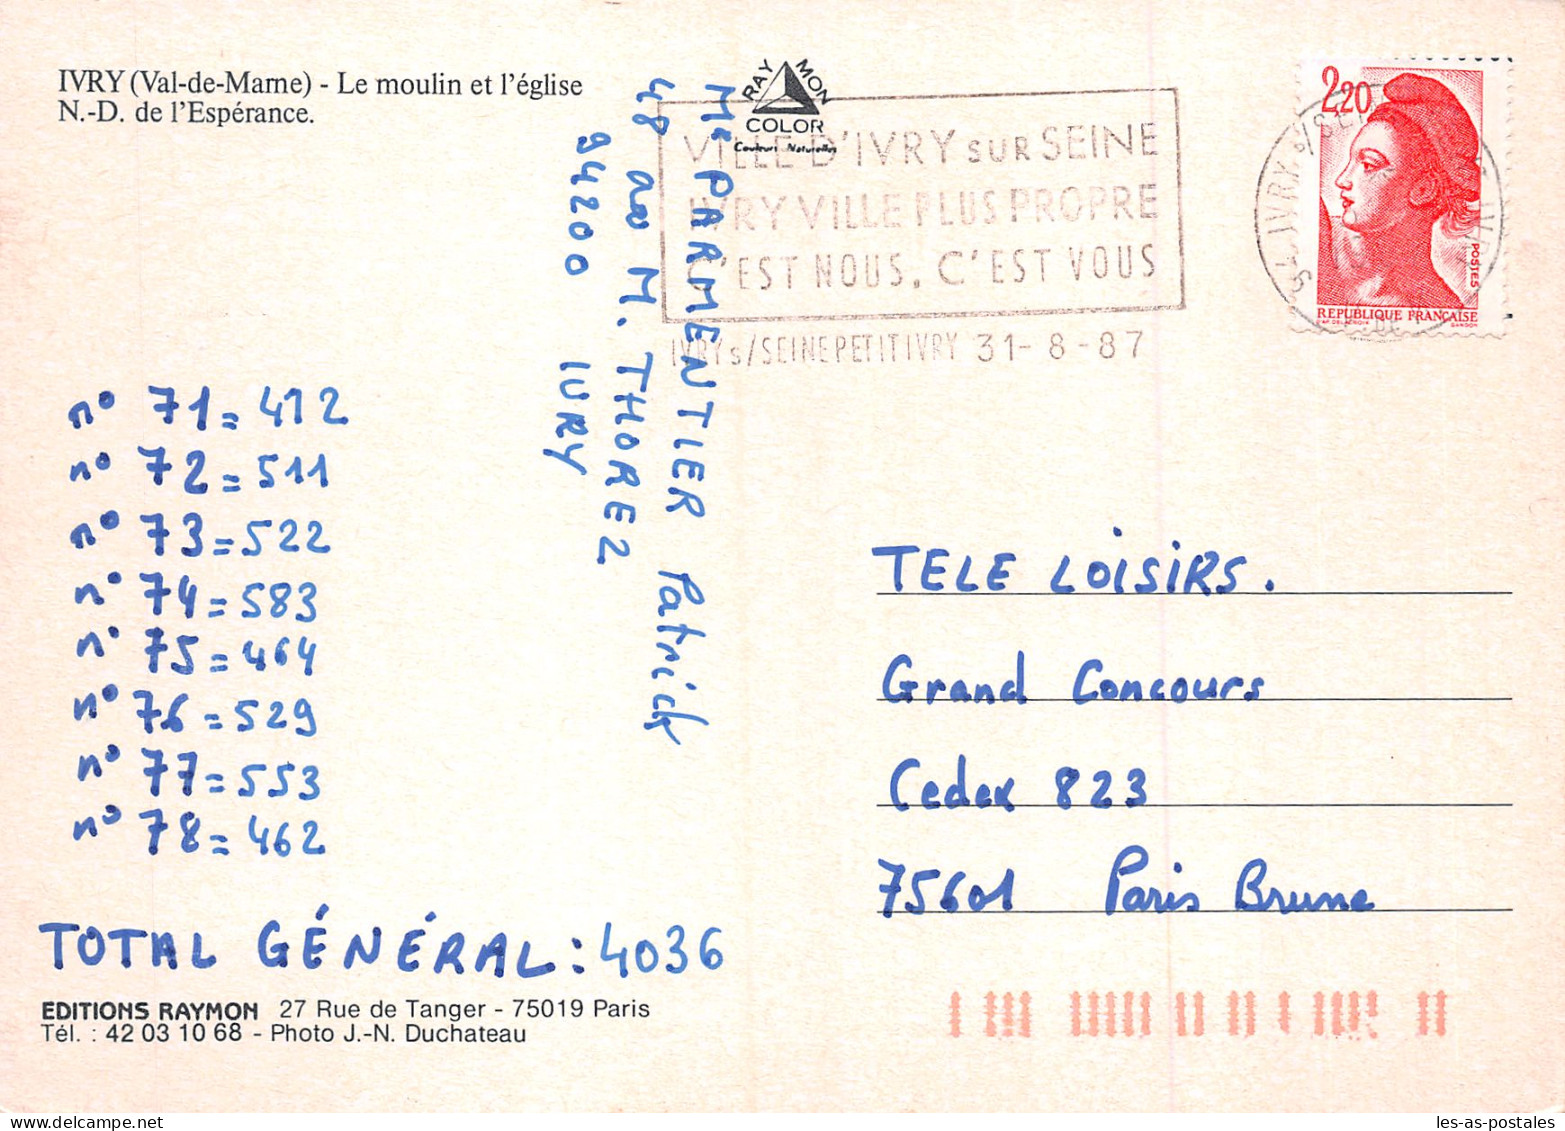 IVRY (Val-de-Marne) - Le moulin et l'église
N.-D. de l'Espérance.
RAYMON
COLOR
Couleurs Naturelles
VILLE D'IVRY SUR SEINE
IVRY VILLE PLUS PROPRE
C'EST NOUS. C'EST VOUS
IVRY s/SEINE PETIT IVRY 31-8-87
2,20
POSTES
REPUBLIQUE FRANÇAISE
D'AP. DELACROIX GANDON
Mr PARMENTIER Patrick
48 av M. THOREZ
94200 IVRY
n° 71 = 412
n° 72 = 511
n° 73 = 522
n° 74 = 583
n° 75 = 464
n° 76 = 529
n° 77 = 553
n° 78 = 462
TOTAL GÉNÉRAL : 4036
TELE LOISIRS.
Grand Concours
Cedex 823
75601 Paris Brune
EDITIONS RAYMON 27 Rue de Tanger - 75019 Paris
Tél. : 42 03 10 68 - Photo J.-N. Duchateau
les-as-postales